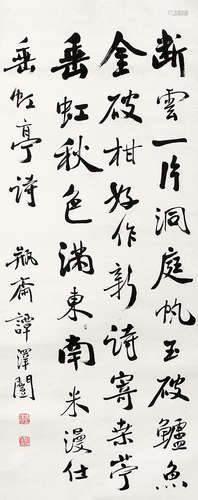 断雲一片洞庭帆玉破鱸魚
金破柑好作新詩寄桑苧
垂虹秋色滿東南米漫仕
垂虹亭詩 瓶齋譚澤闓